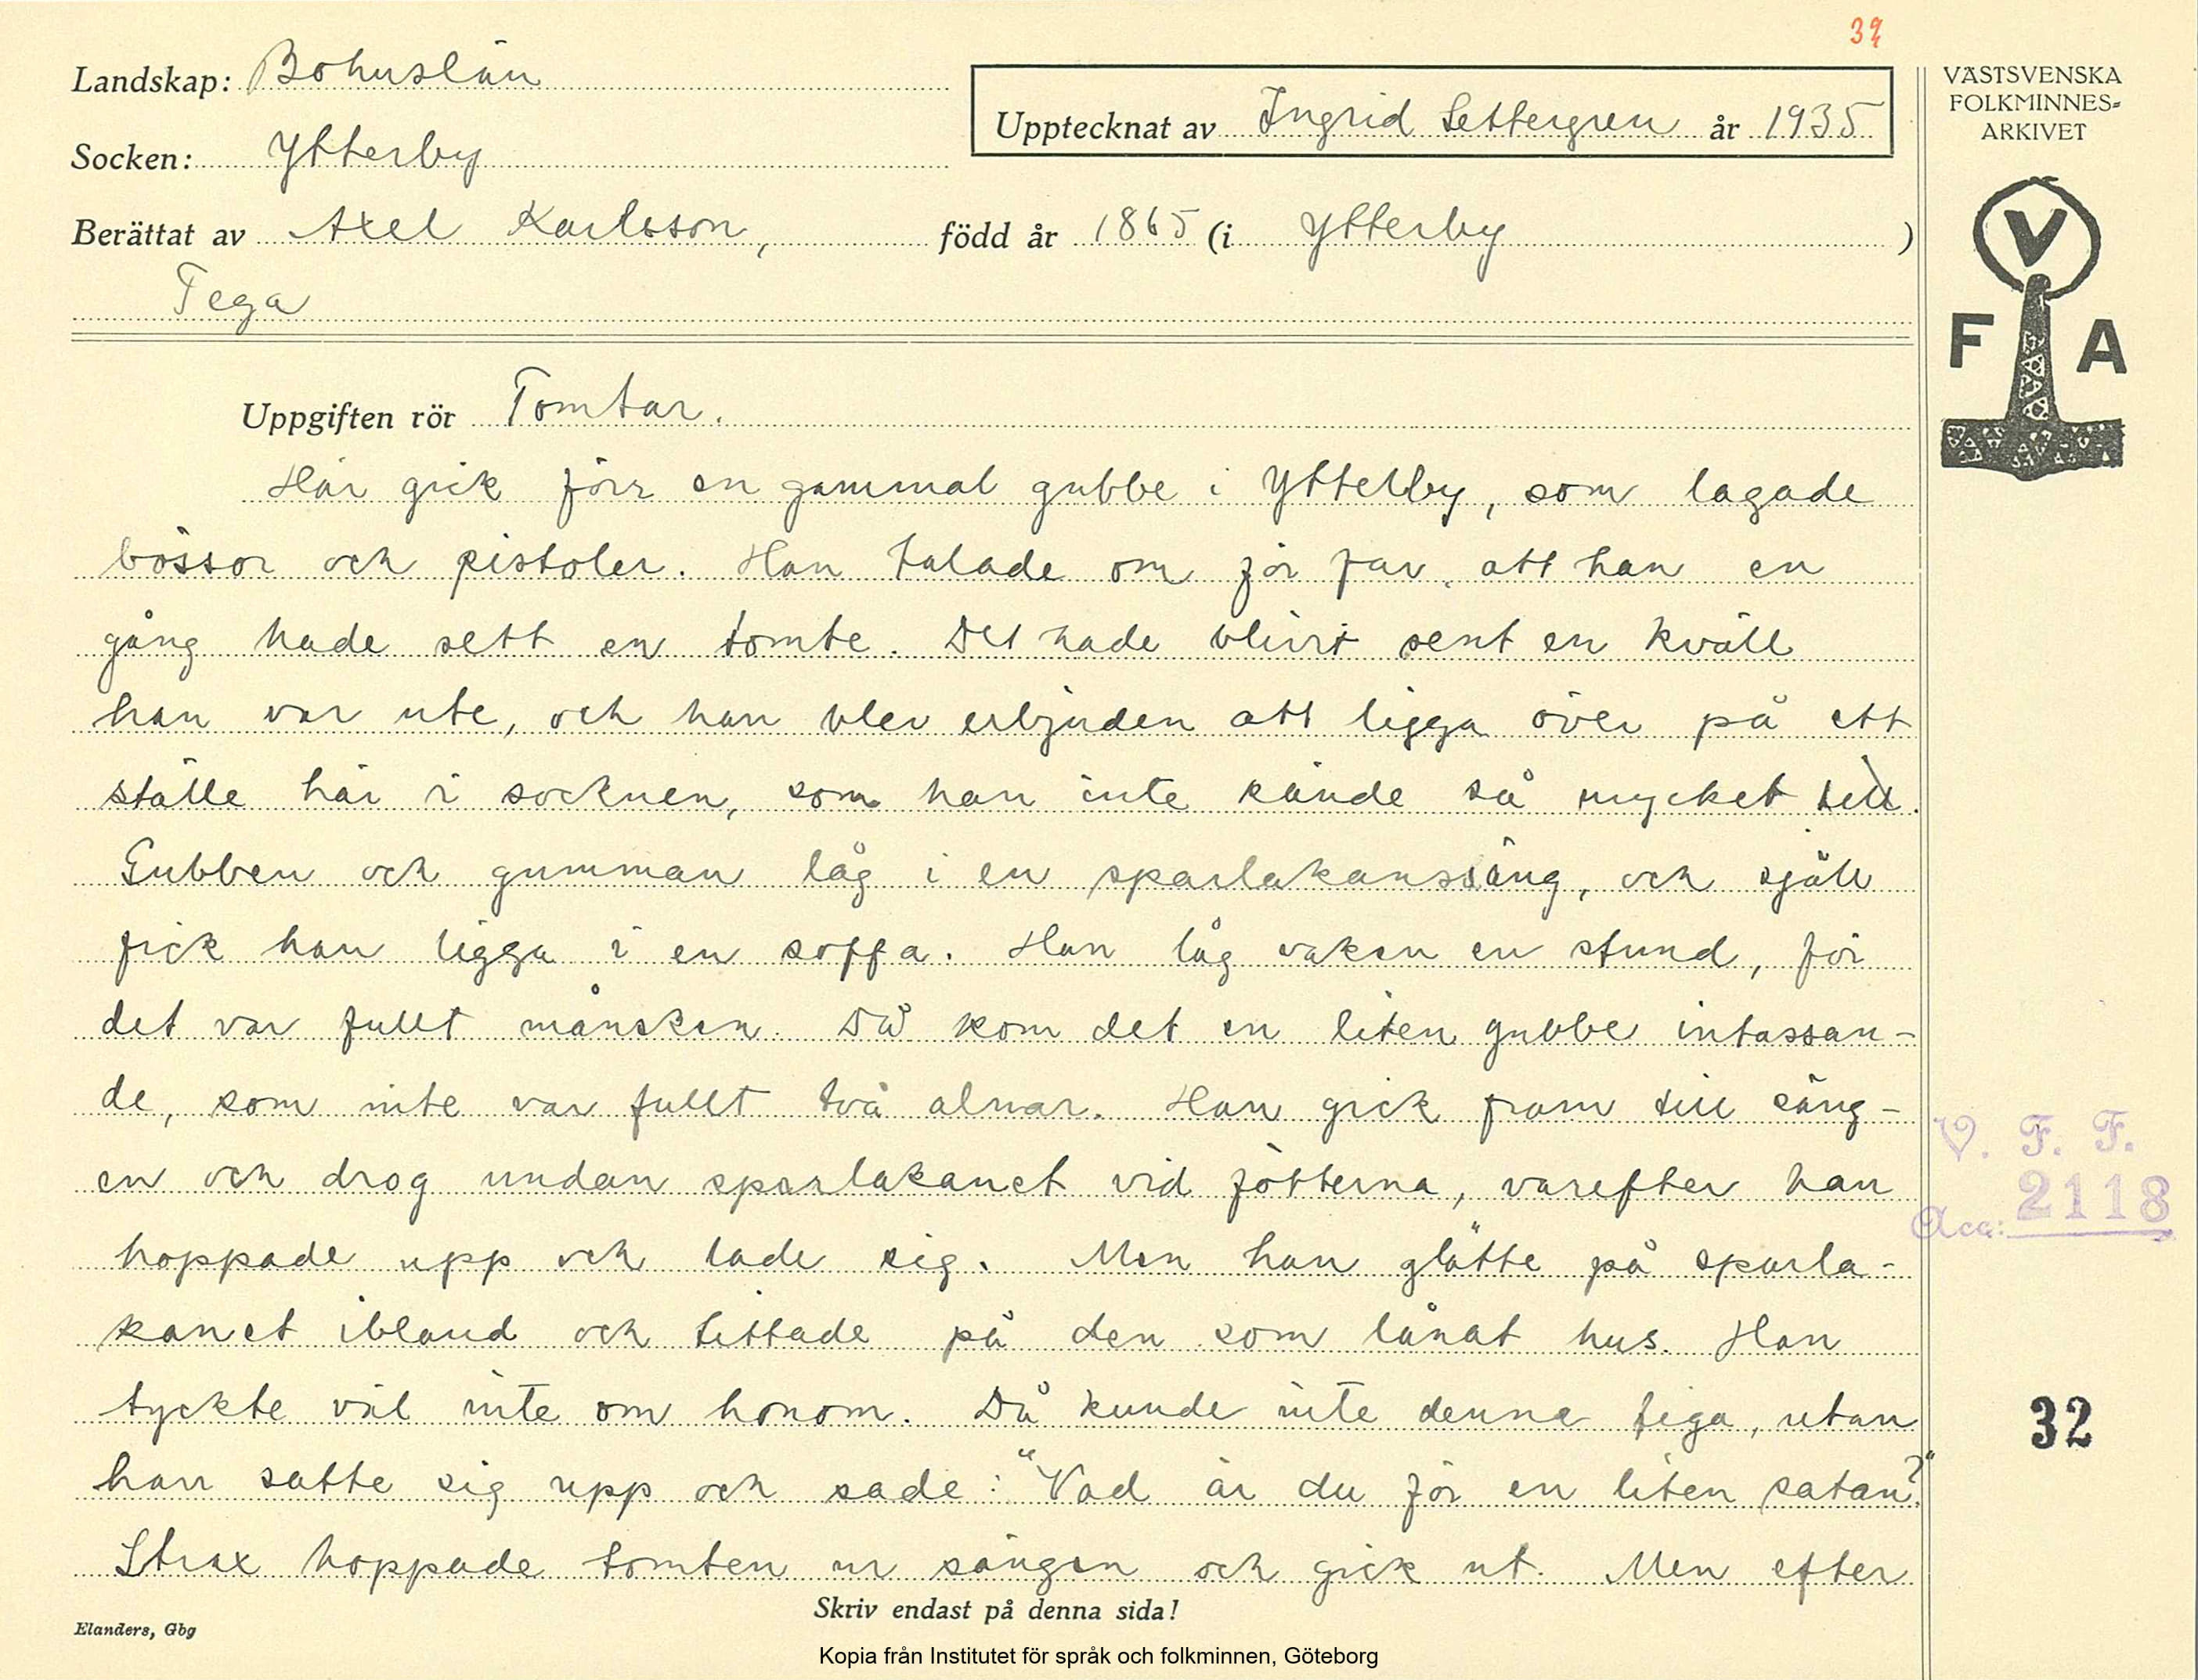 39
Landskap: Bohuslän
Upptecknat av Ingrid Settergren år 1935
Socken: Ytterby
Berättat av Axel Karlsson, född år 1865 (i Ytterby )
Tega
Uppgiften rör Tomtar.
Här gick förr en gammal gubbe i Ytterby, som lagade
bössor och pistoler. Han talade om för far, att han en
gång hade sett en tomte. Det hade blivit sent en kväll
han var ute, och han blev erbjuden att ligga över på ett
ställe här i socknen, som han inte kände så mycket till.
Gubben och gumman låg i en sparlakanssäng, och själv
fick han ligga i en soffa. Han låg vaken en stund, för
det var fullt månsken. Då kom det en liten gubbe intassan-
de, som inte var fullt två alnar. Han gick fram till säng-
en och drog undan sparlakanet vid fötterna, varefter han
hoppade upp och lade sig. Men han glätte på sparla-
kanet ibland och tittade på den som lånat hus. Han
tyckte väl inte om honom. Då kunde inte denne tiga, utan
han satte sig upp och sade: "Vad är du för en liten satan?"
Strax hoppade tomten ur sängen och gick ut. Men efter
Skriv endast på denna sida!
Elanders, Gbg
Kopia från Institutet för språk och folkminnen, Göteborg
VÄSTSVENSKA
FOLKMINNES-
ARKIVET
V
F A
V. F. F.
Acc: 2118
32